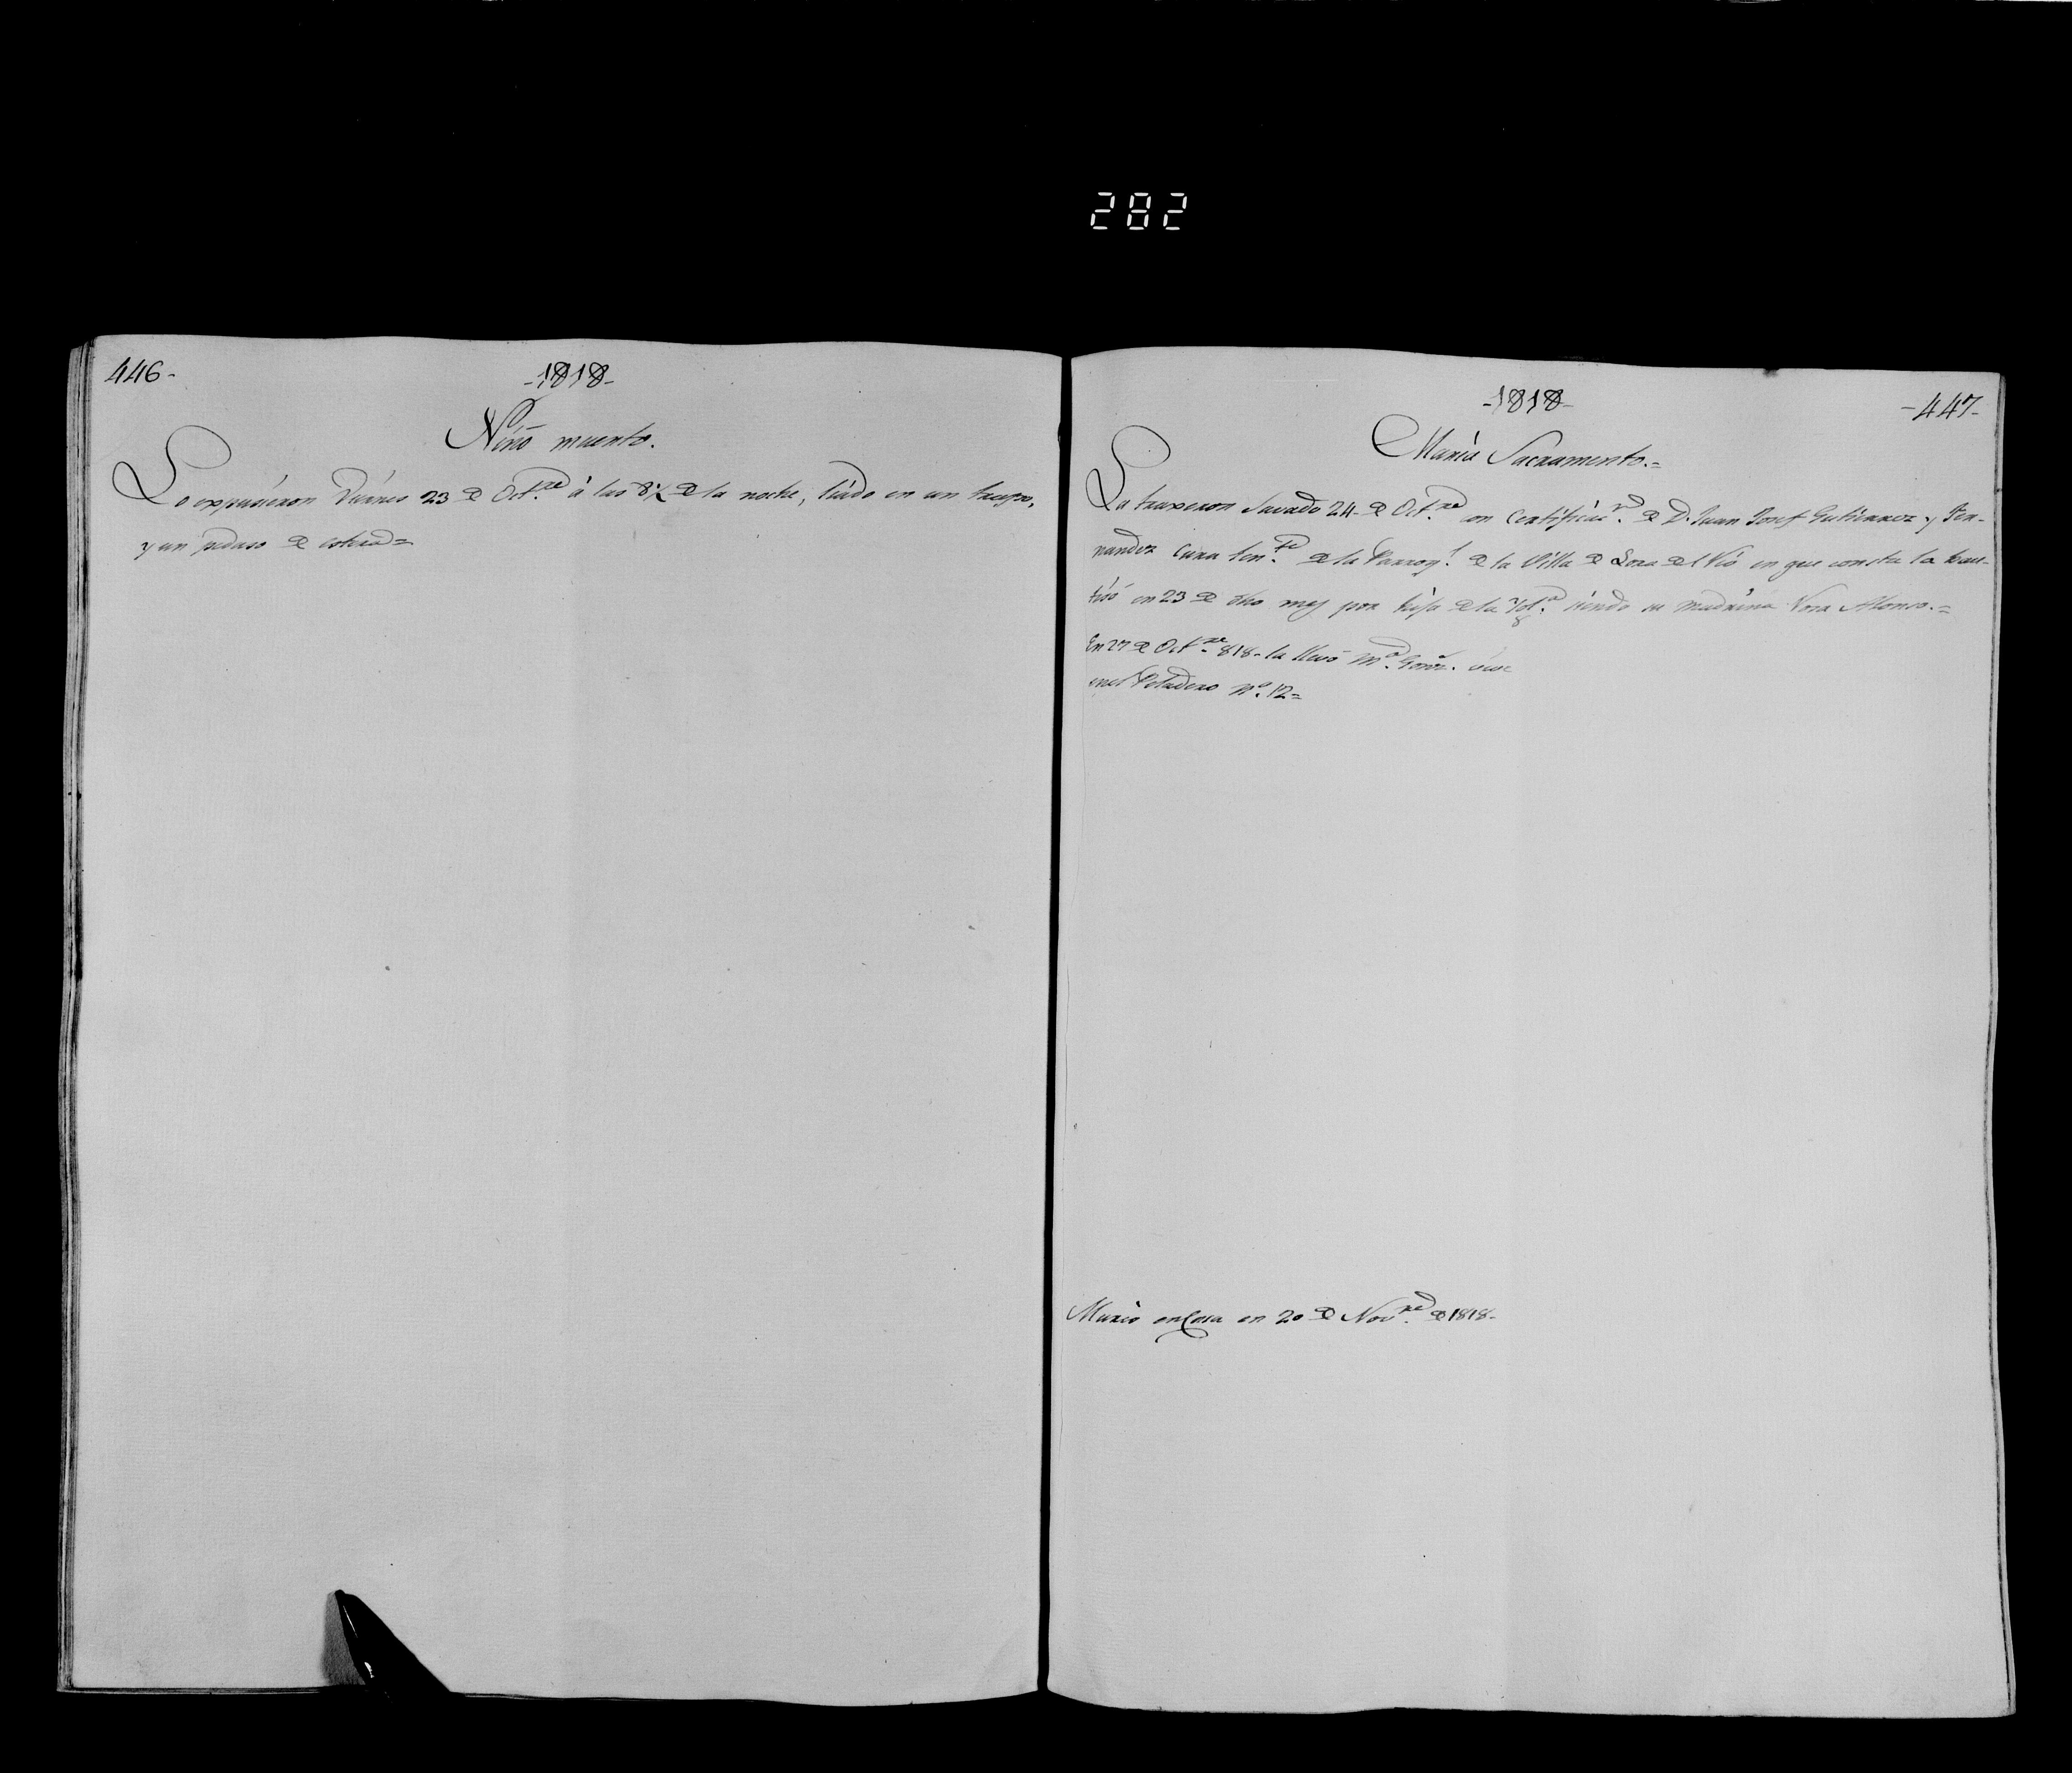 282
446-
-1818-
Niño muerto.
Lo expusieron Viernes 23 de Oct.re à las 8½ de la noche, liado en un trapo,
y un pedaso de estera=
-1818-
-447-
Maria Sacramento.=
La traxeron Savado 24 de Oct.re con Certificac.n de D. Juan Josef Gutierrez y Fer-
nandez Cura ten.te de la Parroq.l de la Villa de Lora del Rio en que consta la bau-
tisó en 23 de dho mes por hija de la Ygl.a siendo su madrina Rosa Alonso.=
En 27 de Oct.re 818- la llevó M.a vive
en el Peladero N.o 12=
Murió en Casa en 20 de Nov.re de 1818-